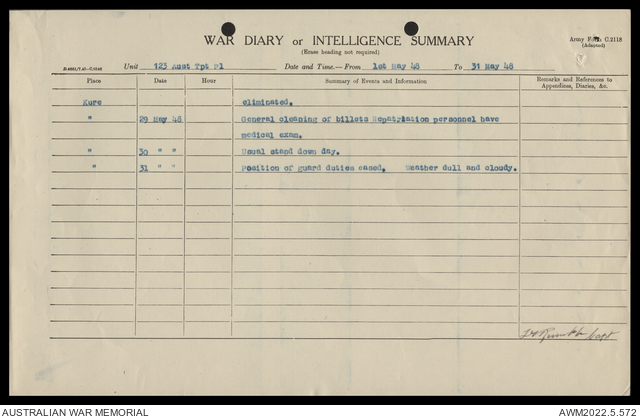 WAR DIARY or INTELLIGENCE SUMMARY
(Erase heading not required)
Army Form C.2118
(Adapted)
Unit 123 Aust Tpt Pl Date and Time.—From 1st May 48 To 31 May 48
Place Date Hour Summary of Events and Information Remarks and References to
Appendices, Diaries, &c.
Kure eliminated.
" 29 May 48 General cleaning of billets Repatriation personnel have
medical exam.
" 30 " " Usual stand down day.
" 31 " " Position of guard duties eased. Weather dull and cloudy.
Capt
AUSTRALIAN WAR MEMORIAL AWM2022.5.572